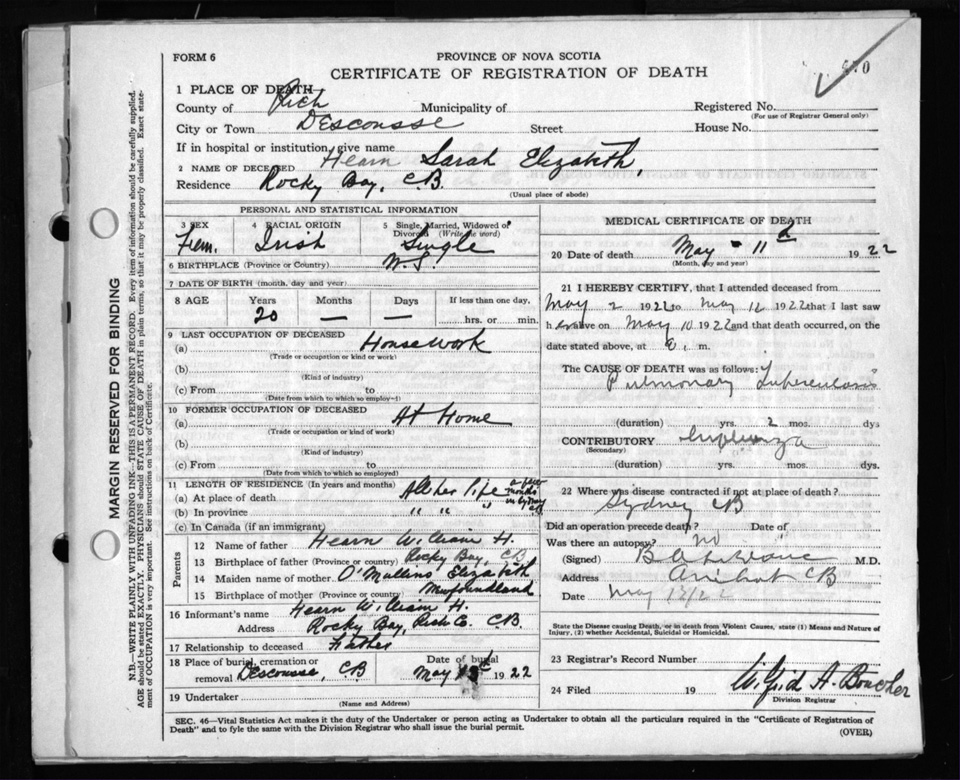 FORM 6
PROVINCE OF NOVA SCOTIA
CERTIFICATE OF REGISTRATION OF DEATH
1 PLACE OF DEATH
County of Rich Municipality of Registered No.
(For use of Registrar General only)
City or Town DEscousse Street House No.
If in hospital or institution, give name
2 NAME OF DECEASED Hearn Sarah Elizabeth,
Residence Rocky Bay, CB.
(Usual place of abode)
PERSONAL AND STATISTICAL INFORMATION
3 SEX 4 RACIAL ORIGIN 5 Single, Married, Widowed or Divorced (Write the word)
Fem. Irish Single
6 BIRTHPLACE (Province or Country) N.S.
7 DATE OF BIRTH (month, day and year)
8 AGE Years Months Days If less than one day,
20 — — hrs. or min.
9 LAST OCCUPATION OF DECEASED
(a) Housework
(Trade or occupation or kind or work)
(b)
(Kind of industry)
(c) From to
(Date from which to which so employed)
10 FORMER OCCUPATION OF DECEASED
(a) At Home
(Trade or occupation or kind of work)
(b)
(Kind of industry)
(c) From to
(Date from which to which so employed)
11 LENGTH OF RESIDENCE (In years and months)
(a) At place of death All her life a few months in Sydney CB
(b) In province " " "
(c) In Canada (if an immigrant)
Parents
12 Name of father Hearn William H.
13 Birthplace of father (Province or country) Rocky Bay, CB
14 Maiden name of mother O'Mullins Elizabeth
15 Birthplace of mother (Province or country) Newfoundland
16 Informant's name Hearn William H.
Address Rocky Bay, Rich Co. C.B.
17 Relationship to deceased Father
18 Place of burial, cremation or removal Descousse, CB
Date of burial May 1922
19 Undertaker
(Name and Address)
MEDICAL CERTIFICATE OF DEATH
20 Date of death May - 11 1922
(Month, day and year)
21 I HEREBY CERTIFY, that I attended deceased from
May 2 1922 to May 1922 that I last saw
her alive on May 10 1922 and that death occurred, on the
date stated above, at m.
The CAUSE OF DEATH was as follows:
Pulmonary Tuberculosis
(duration) yrs. 2 mos. dys
CONTRIBUTORY Influenza
(Secondary)
(duration) yrs. mos. dys.
22 Where was disease contracted if not at place of death?
Sydney CB
Did an operation precede death? Date of
Was there an autopsy? No
(Signed) M.D.
Address Arichat CB
Date May /22
State the Disease causing Death, or in death from Violent Causes, state (1) Means and Nature of
Injury, (2) whether Accidental, Suicidal or Homicidal.
23 Registrar's Record Number
24 Filed 19 Wilfrid A. Boucher
Division Registrar
SEC. 46—Vital Statistics Act makes it the duty of the Undertaker or person acting as Undertaker to obtain all the particulars required in the "Certificate of Registration of
Death" and to fyle the same with the Division Registrar who shall issue the burial permit.
(OVER)
MARGIN RESERVED FOR BINDING
N.B.—WRITE PLAINLY, WITH UNFADING INK—THIS IS A PERMANENT RECORD. Every item of information should be carefully supplied.
AGE should be stated EXACTLY. PHYSICIANS should STATE CAUSE OF DEATH in plain terms, so that it may be properly classified. Exact state-
ment of OCCUPATION is very important. See instructions on back of Certificate.